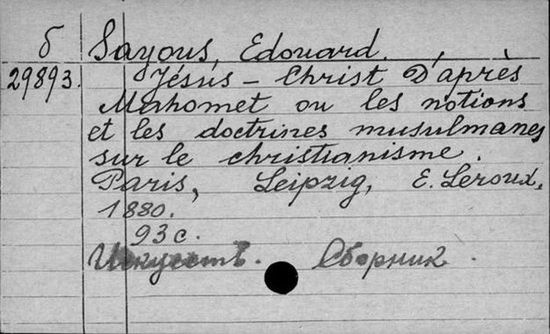 б Sayous, Edouard.
29893. Jésus - Christ D'après
Mahomet ou les notions
et les doctrines musulmanes
sur le christianisme.
Paris, Leipzig, E. Leroux,
1880.
93 с.
Искусств. Сборник.